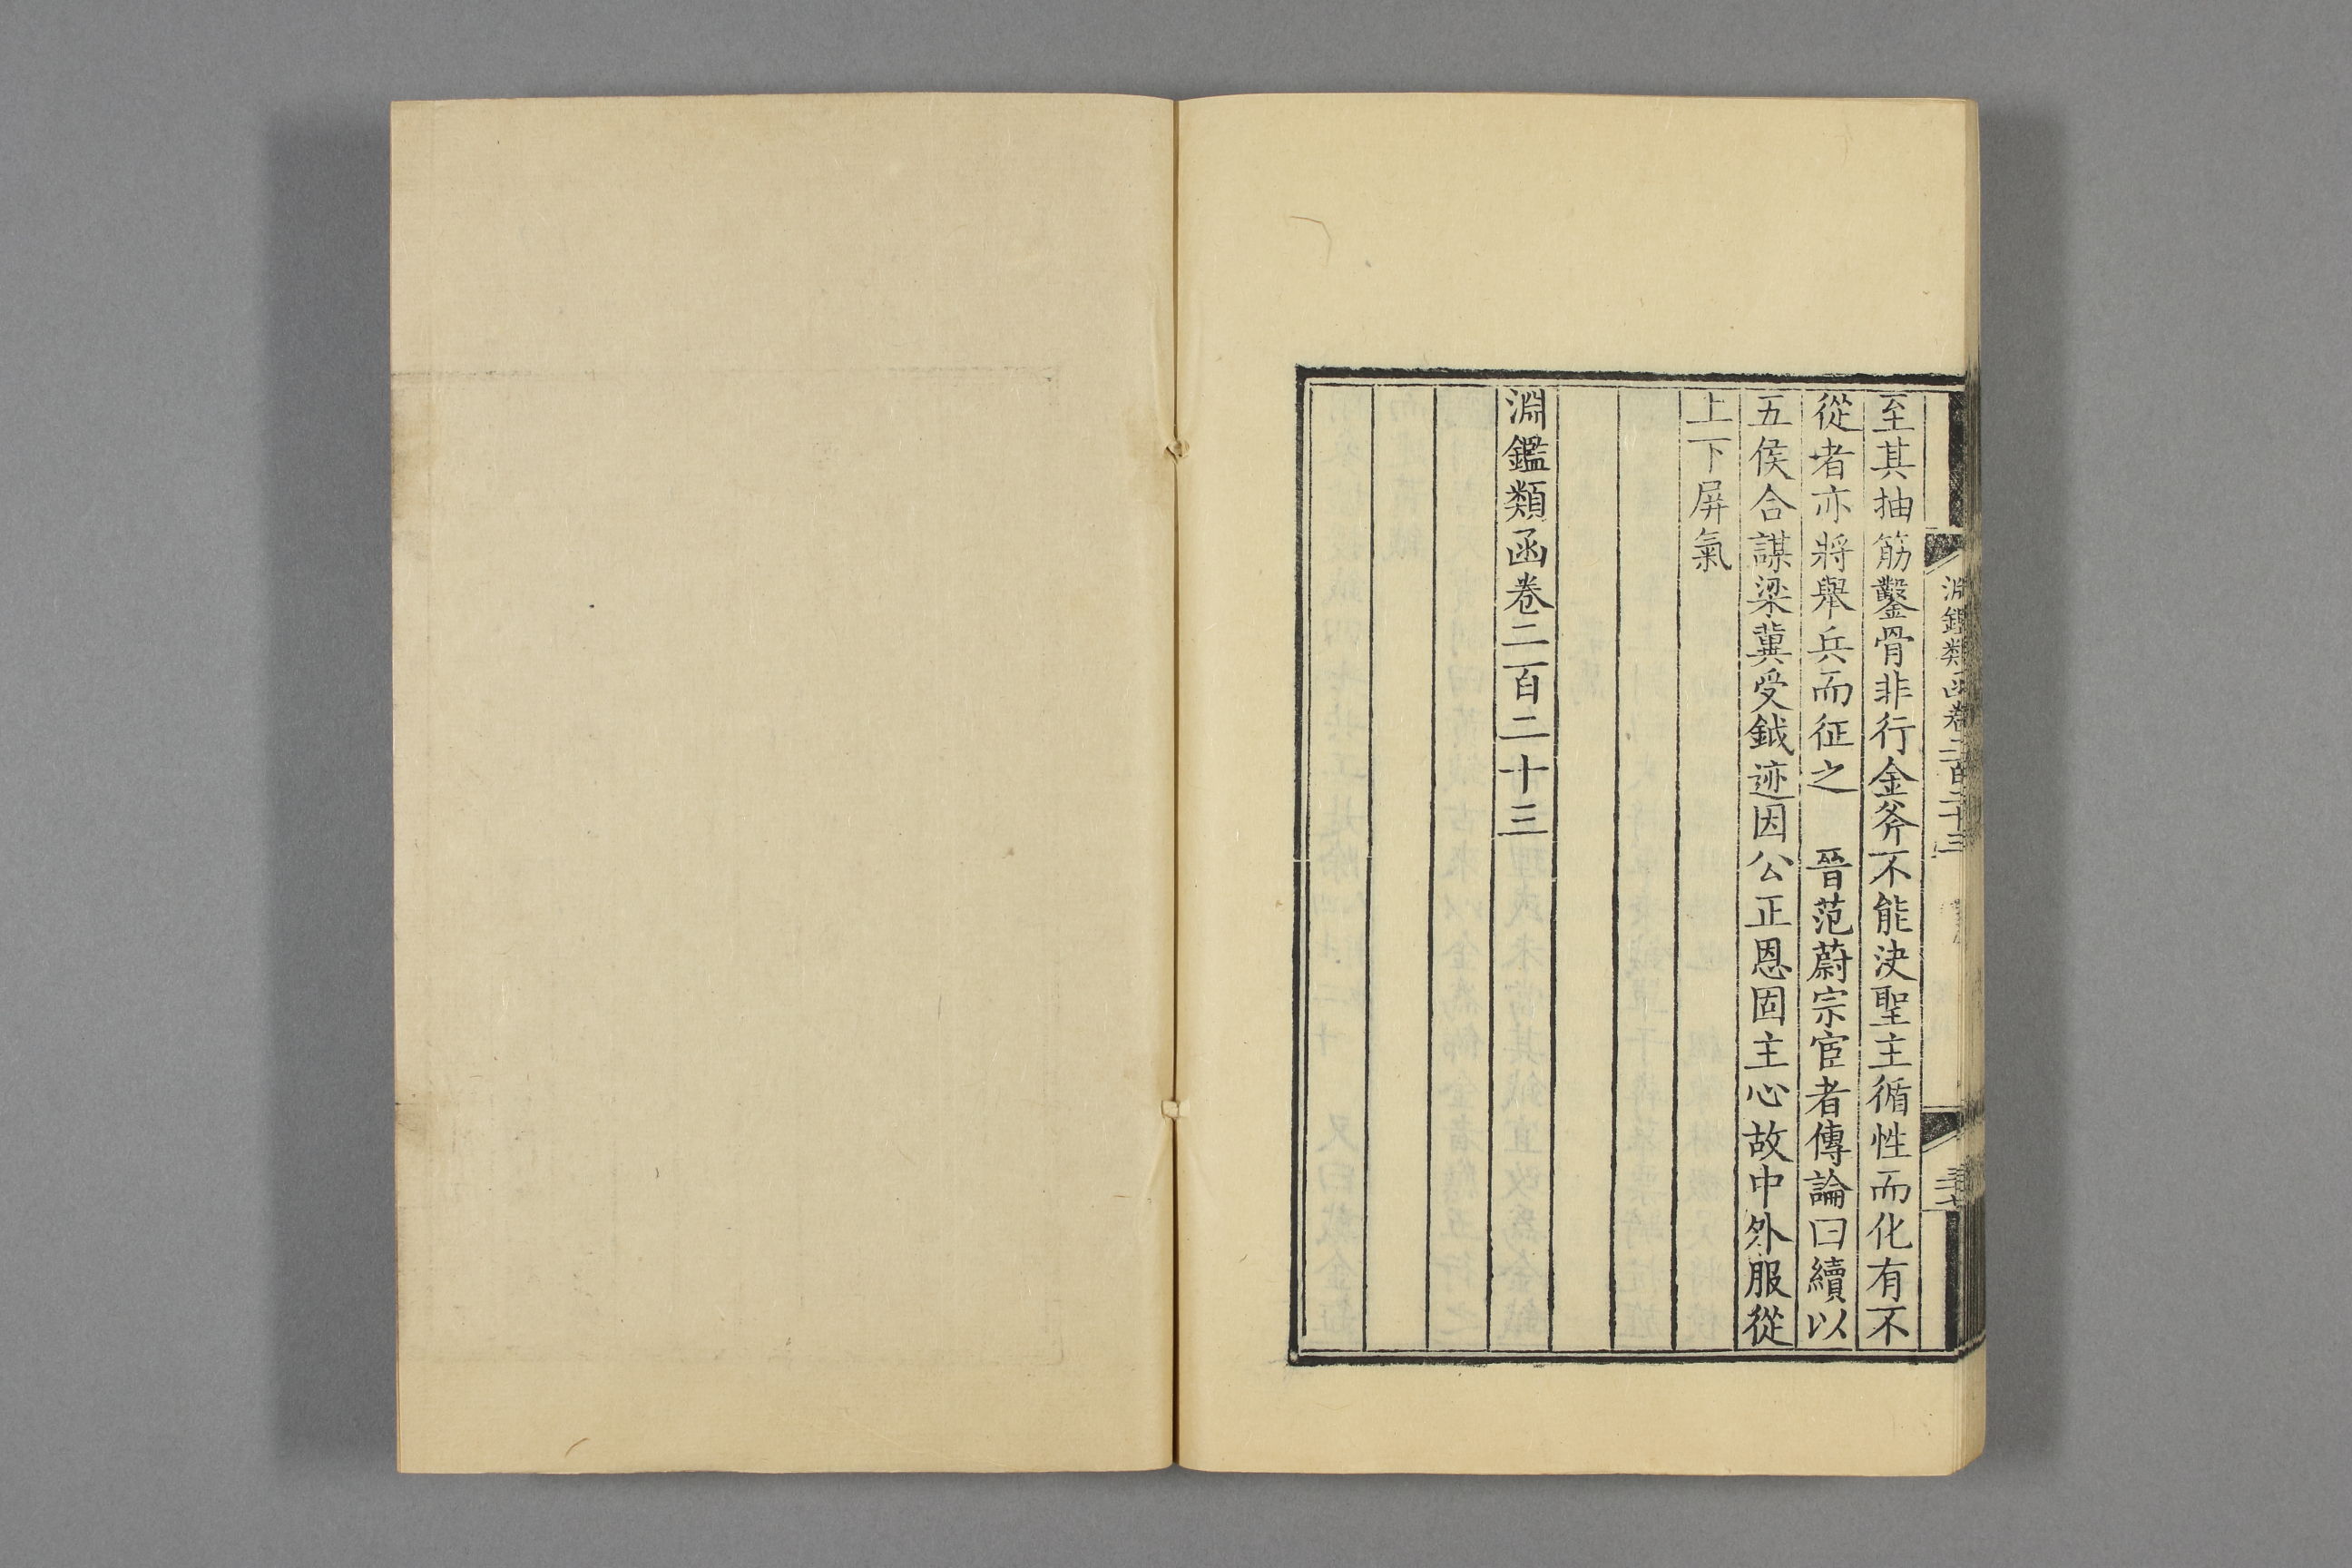 至其抽筋鑿骨非行金斧不能決聖主循性而化有不
從者亦將舉兵而征之　晉范蔚宗宦者傳論曰續以
五侯合謀梁冀受鉞迹因公正恩固主心故中外服從
上下屏氣
淵鑑類函卷二百二十三
淵鑑類函卷二百二十三